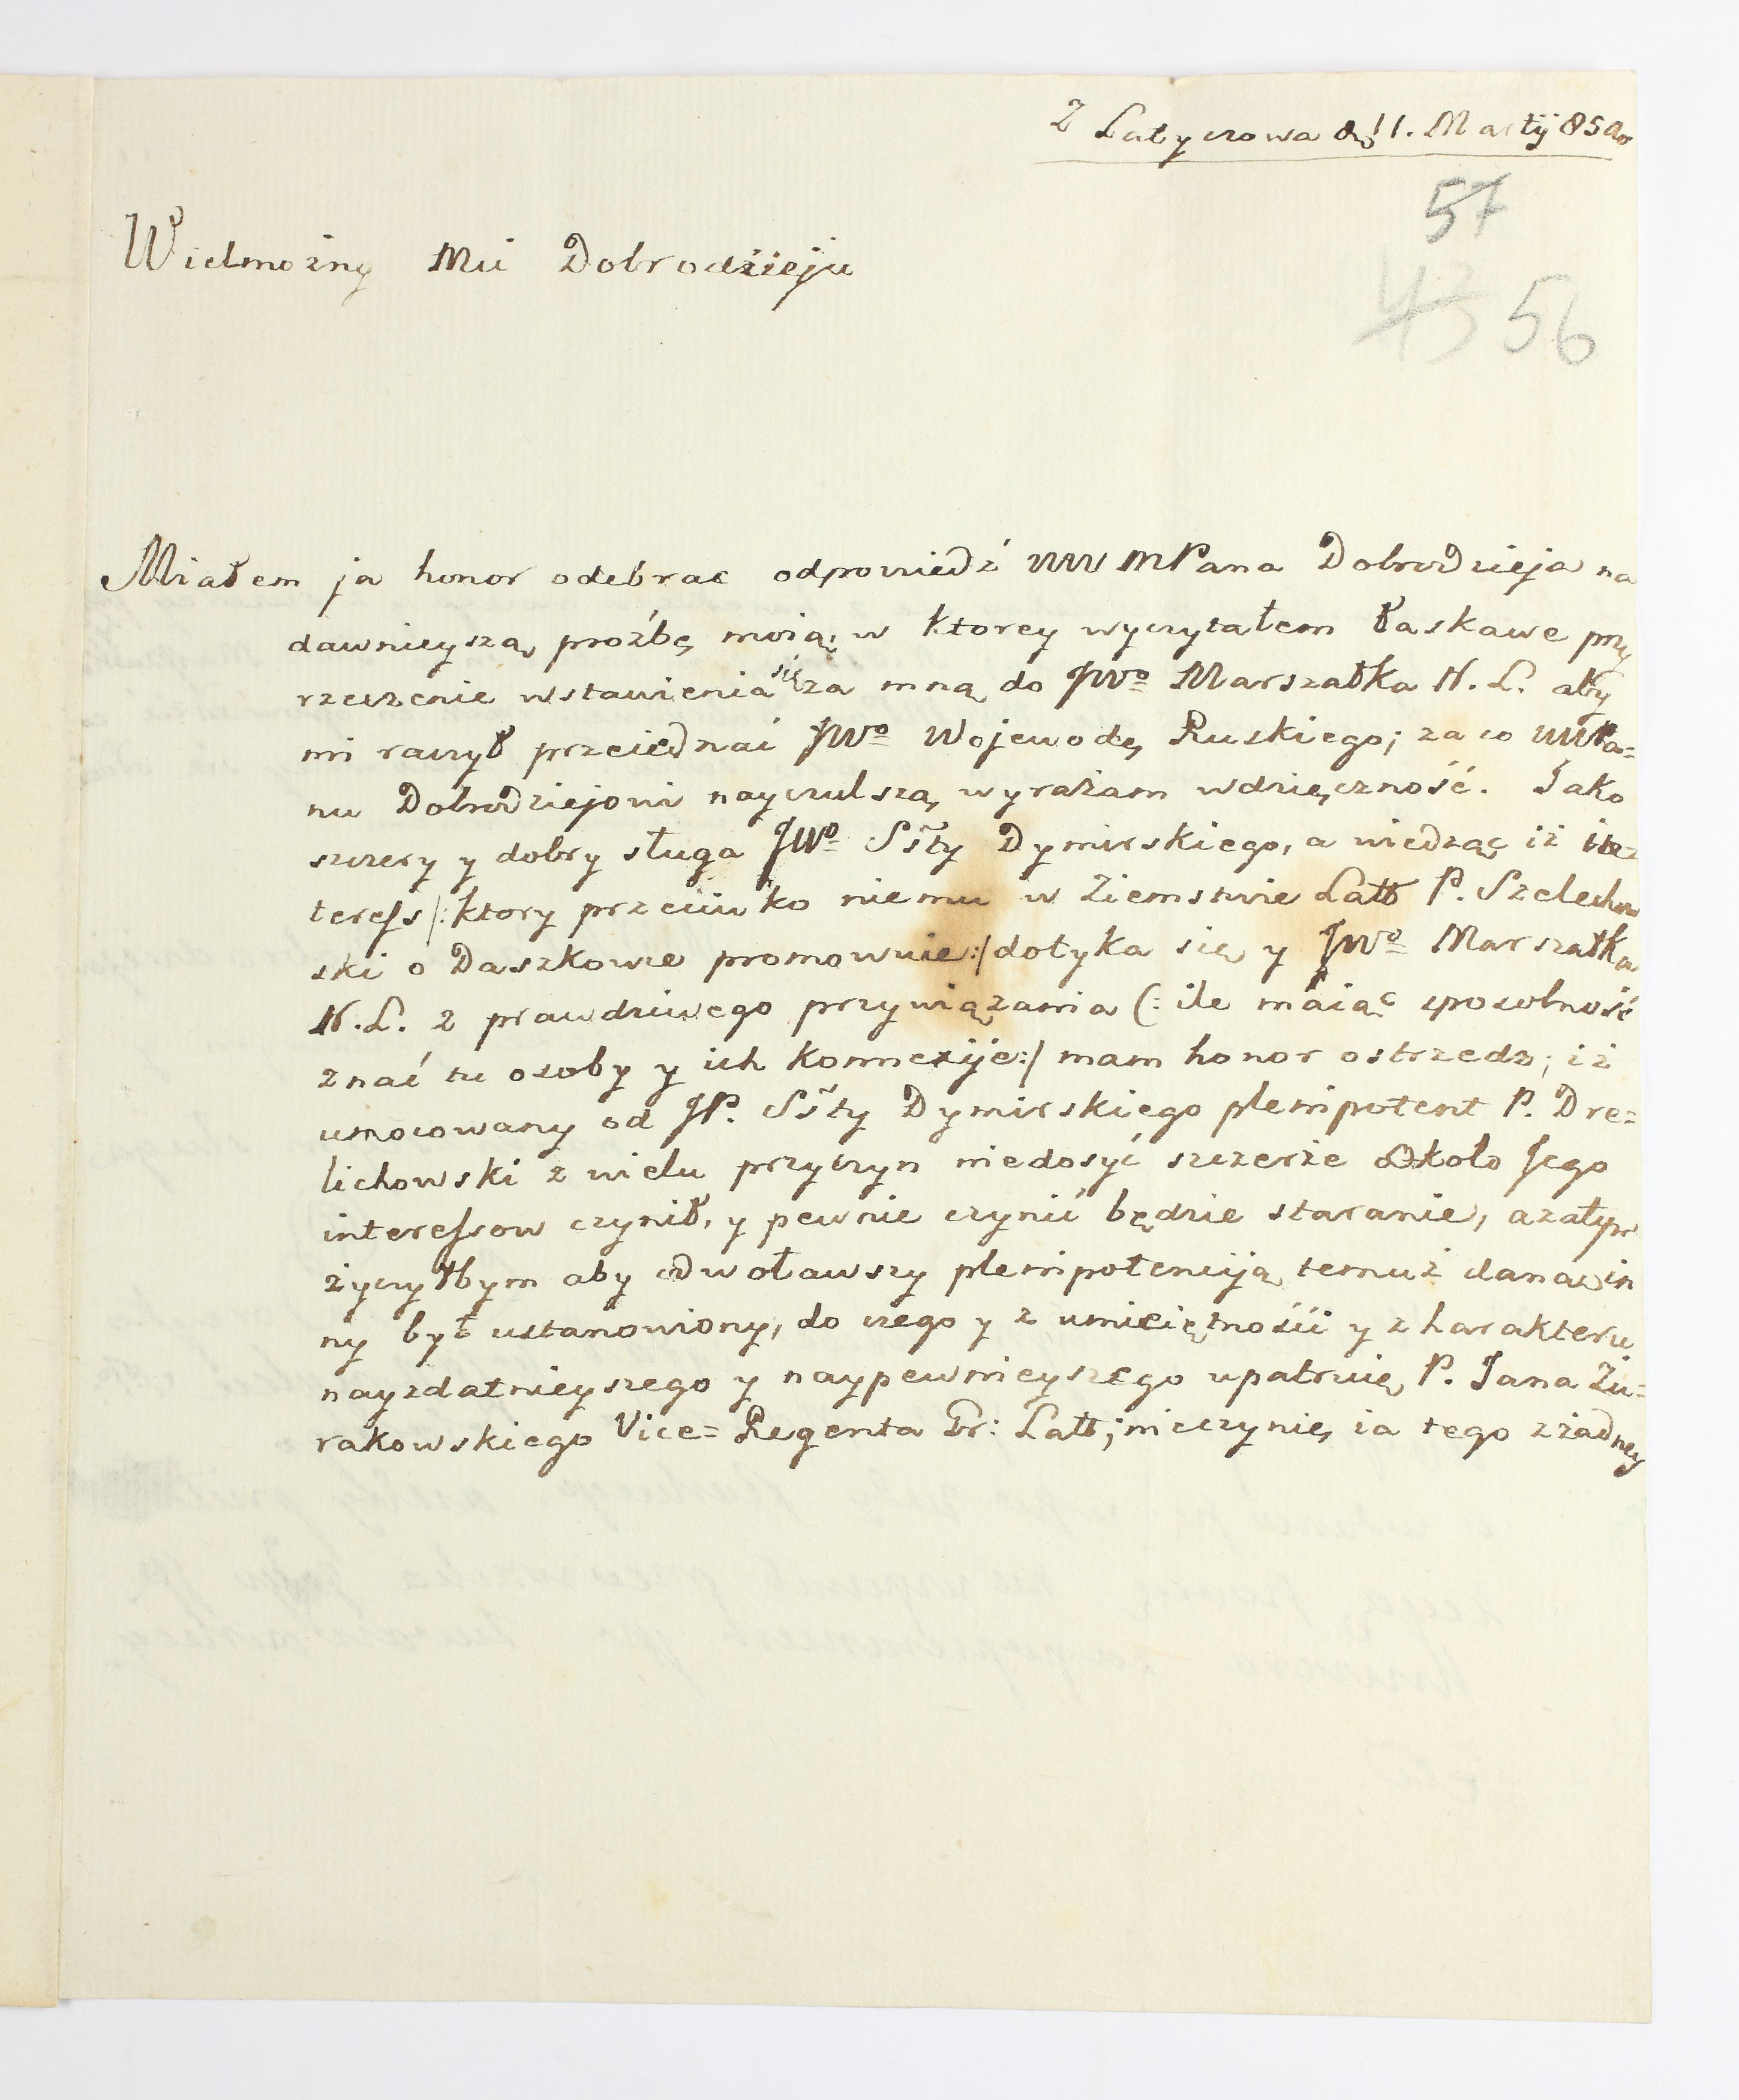 Z Latyczowa d. 11. Martij 85 Ao
57
43 56
Wielmożny Mci Dobrodzieju
Miałem ja honor odebrac odpowiedź WW MPana Dobrodzieja na
dawnieyszą proźbę moią; w ktorey wyczytałem łaskawe przy
rzeczenie wstawienia się za mną do JWo Marszałka N. L. aby
mi raczył przeiednać JWo Wojewodę Ruskiego; za co WMPa=
nu Dobrodziejowi nayczulszą wyrażam wdzięczność. Jako
szczery y dobry sługa JWo Ssty Dymirskiego, a wiedząc iż in=
teress /: ktory przeciwko niemu w Ziemstwie Latt P. Szelechow
ski o Daszkowce promowuie :/ dotyka się y JWo Marszałka
N. L. z prawdziwego przywiązania (: ile maiąc sposobność
znać tu osoby y ich konnexije :/ mam honor ostrzedz; iż
umocowany od JP. Ssty Dymirskiego plenipotent P. Dre=
lichowski z wielu przyczyn niedosyć szczerze około Jego
interessow czynił, y pewnie czynić będzie staranie, azatym
życzyłbym aby odwoławszy plenipotencyją temuż daną in
ny był ustanowiony, do czego y z umieiętności y z harakteru
nayzdatnieyszego y naypewnieyszego upatruię P. Jana Żu=
rakowskiego Vice=Regenta Gr: Latt; nieczynię ia tego z żadney